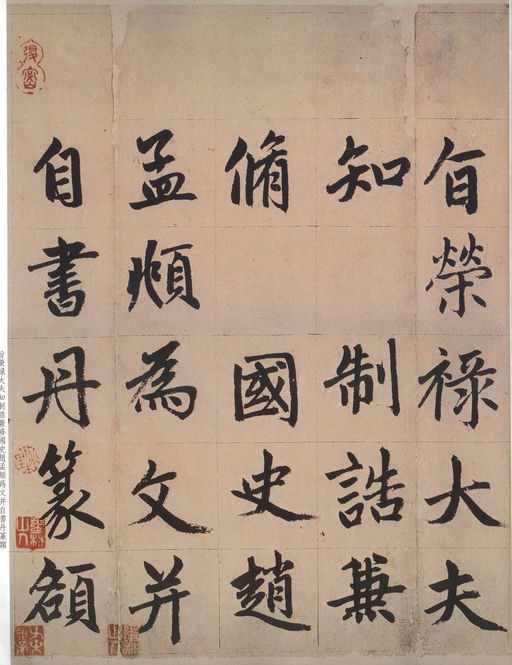 旨榮祿大夫
知制誥兼
脩國史趙
孟頫為文并
自書丹篆額
旨榮祿大夫知制誥兼修國史趙孟頫為文并自書丹篆額
墨林山人